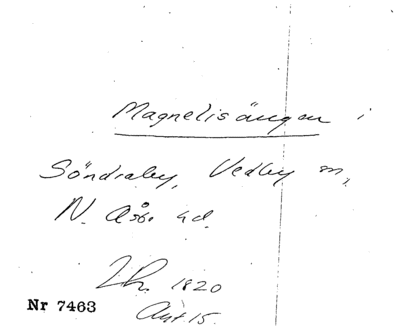 Magnelisängen i
Söndraby, Vedby sn,
N. Åsbo hd.
1820
Nr 7463
15.